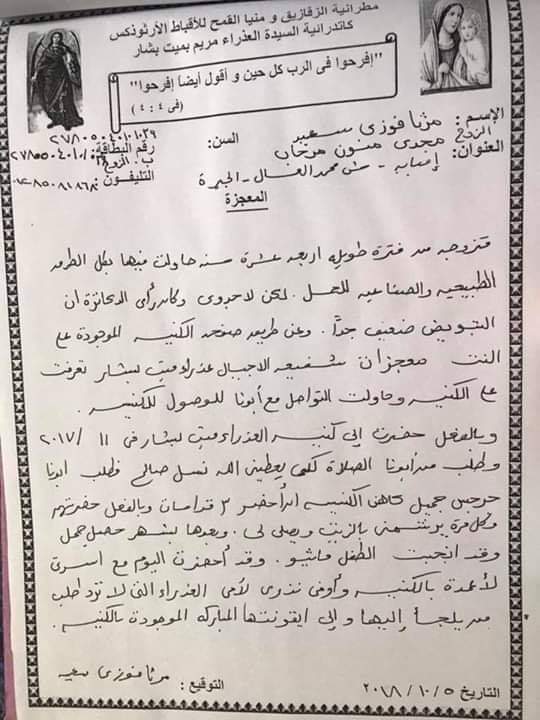 مطرانية الزقازيق و منيا القمح للأقباط الأرثوذكس
كاتدرائية السيدة العذراء مريم بميت بشار
"إفرحوا فى الرب كل حين و أقول أيضاً إفرحوا"
(فى ٤ : ٤)
الإسم : مرثا فوزى سعيد
السن :
٢٧٨٠٥٠٤٠١٠١٠٢٩
الزوج : مجدى
رقم البطاقة :
العنوان : إمبابه - ش محمد العسال - الجيزة
ب. الزوج
التليفون :
المعجزة
متزوجه من فترة طويله اربعه عشرة سنه حاولت فيها بكل الطرق
الطبيعيه والصناعيه للحمل. لكن لا جدوى وكان رأى الدكاترة ان
التبويض ضعيف جداً. وعن طريق صفحه الكنيسه الموجودة على
النت معجزات شفيعه الاجيال عذراء ميت بشار تعرفت
على الكنيسه وحاولت التواصل مع أبونا للوصول للكنيسه.
وبالفعل حضرت إلى كنيسه العذراء ميت بشار فى ١١ / ٢٠١٧
وطلبت من أبونا الصلاة لكى يعطينى الله نسل صالح فطلب ابونا
جرجس جميل كاهن الكنيسه أن أحضر ٣ قداسات وبالفعل حضرتهم
وكل مرة يرشمنى بالزيت ويصلى لى. وبعدها بشهر حصل حمل
وقد انجبت الطفل ماثيو. وقد أحضرت اليوم مع اسرتى
لأعمدة بالكنيسه وأوفى نذرى لأمى العذراء التى لا ترد طلب
من يلجأ إليها وإلى ايقونتها المباركه الموجودة بالكنيسه.
التاريخ ٥ / ١٠ / ٢٠١٨
التوقيع : مرثا فوزى سعيد